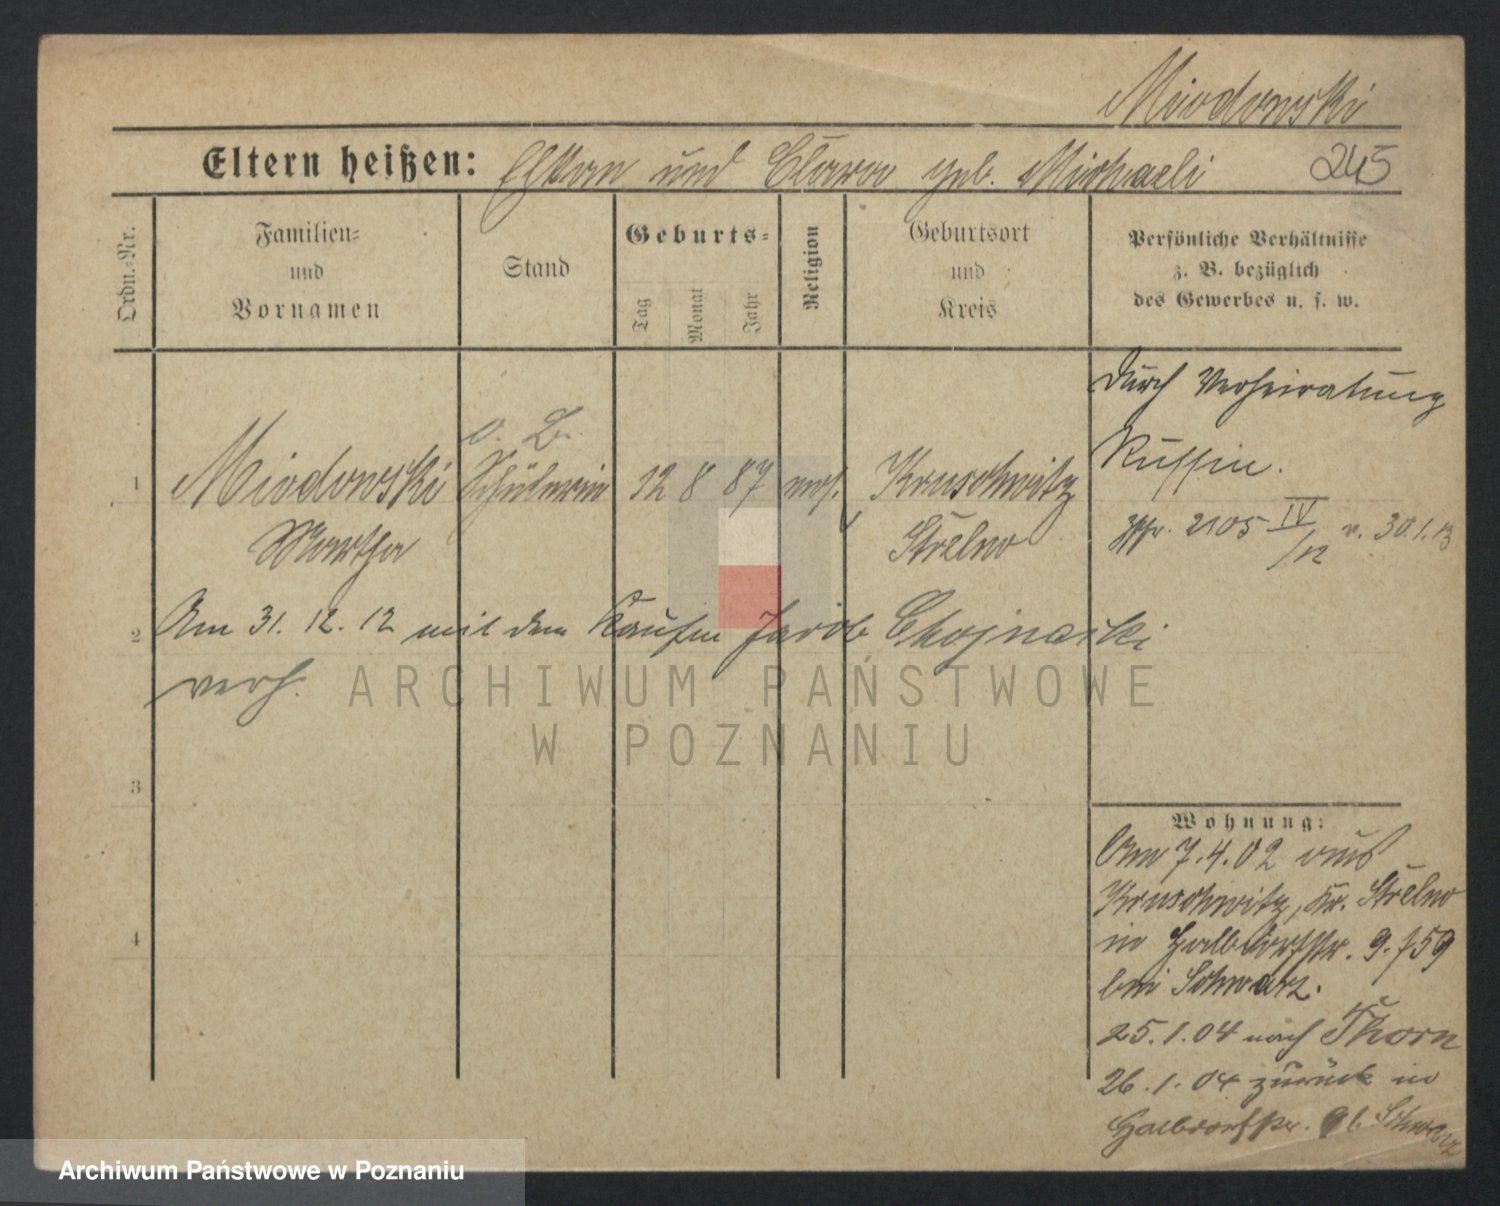 Miodowski
Eltern heißen: Elkan und Clara geb. Michaeli 245
Ordn.-Nr.
Familien-
und
Vornamen
Stand
Geburts-
Tag
Monat
Jahr
Religion
Geburtsort
und
Kreis
Persönliche Verhältnisse
z. B. bezüglich
des Gewerbes u. s. w.
durch Verheiratung
Russin.
2105 IV/12 v. 30.1.13
o. B.
1 Miodowski Schülerin 12 8 87 mos. Kruschwitz
Martha Strelno
2 Am 31. 12. 12 mit dem Kaufm Jacob Chojnacki
verh.
3
4
Wohnung:
Am 7.4.02 aus
Kruschwitz, Kr. Strelno
in Halbdorfstr. 9. f59
bei Schwarz.
25.1.04 nach Thorn
26.1.04 zurück in
Halbdorfstr. 9 b. Schwarz
ARCHIWUM PAŃSTWOWE
W POZNANIU
Archiwum Państwowe w Poznaniu